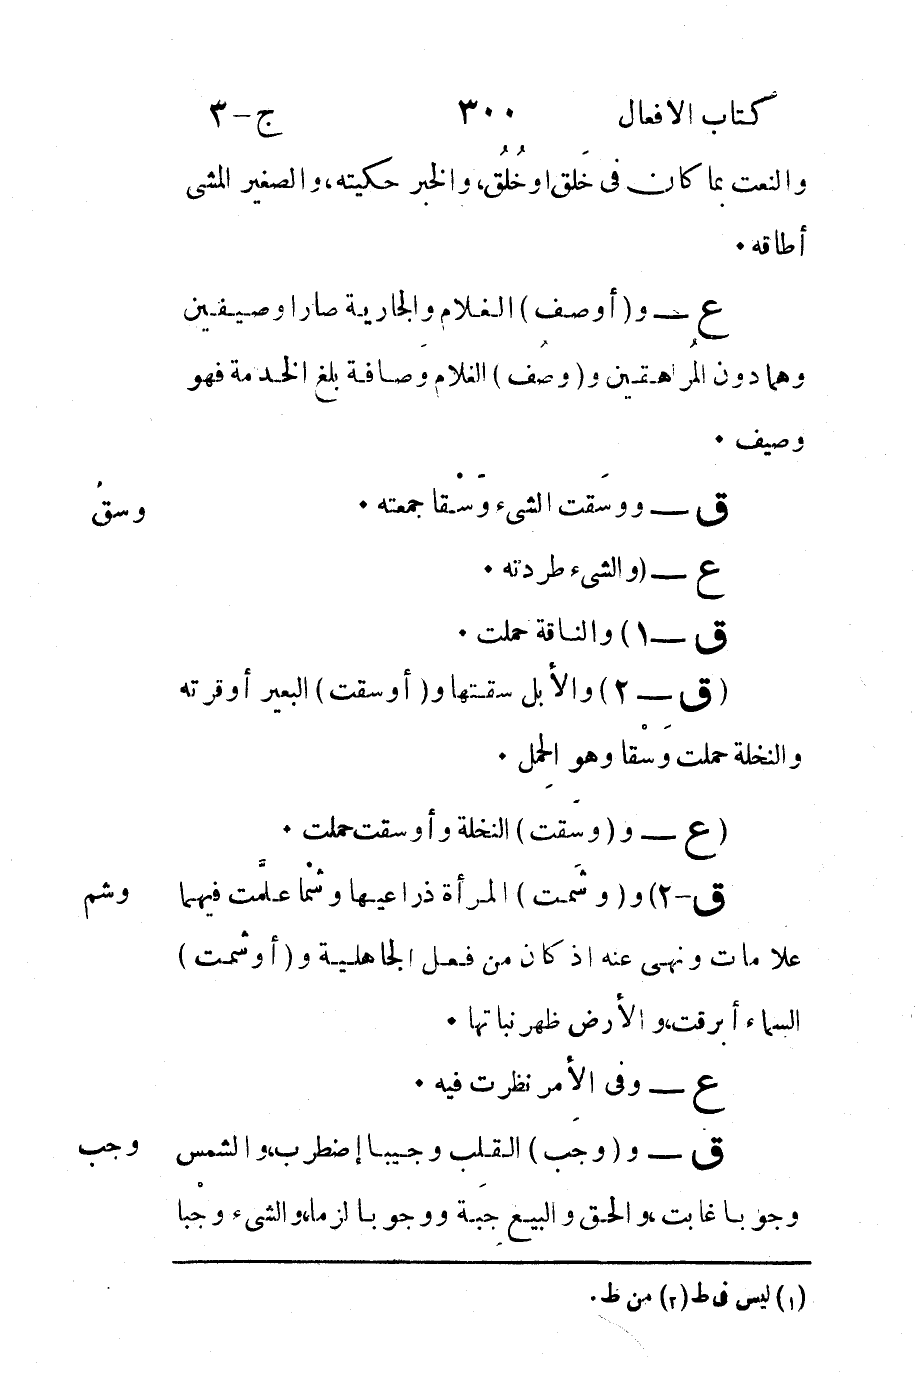 كتاب الافعال ٣٠٠ ج-٣
والنعت بما كان فى خَلق او خُلُق، والخبر حكيته، والصغير المشى
أطاقه ٠
ع — و(أوصف) الغلام والجارية صارا وصيفين
وهما دون المُراهقين و(وصُف) الغلام وَصافة بلغ الخدمة فهو
وصيف ٠
ق — ووسَقت الشىء وَسْقا جمعته ٠ وسقُ
ع — (والشىء طردته ٠
ق —١) والناقة حملت ٠
(ق — ٢) والأبل سقتها و(أوسقت) البعير أوقرته
والنخلة حملت وَسْقا وهو الحِمل ٠
(ع — و(وسَقت) النخلة وأوسقت حملت ٠
ق-٢) و(وشَمت) المرأة ذراعيها وشْما علَّمت فيهما وشم
علامات ونهى عنه اذ كان من فعل الجاهلية و(أوشمت)
السماء أبرقت، والأرض ظهر نباتها ٠
ع — وفى الأمر نظرت فيه ٠
ق — و(وجَب) القلب وجيبا إضطرب، والشمس وجب
وجوبا غابت، والحق والبيع جِبَة ووجوبا لزما، والشىء وجْبا
(١) ليس فى ط (٢) من ط.